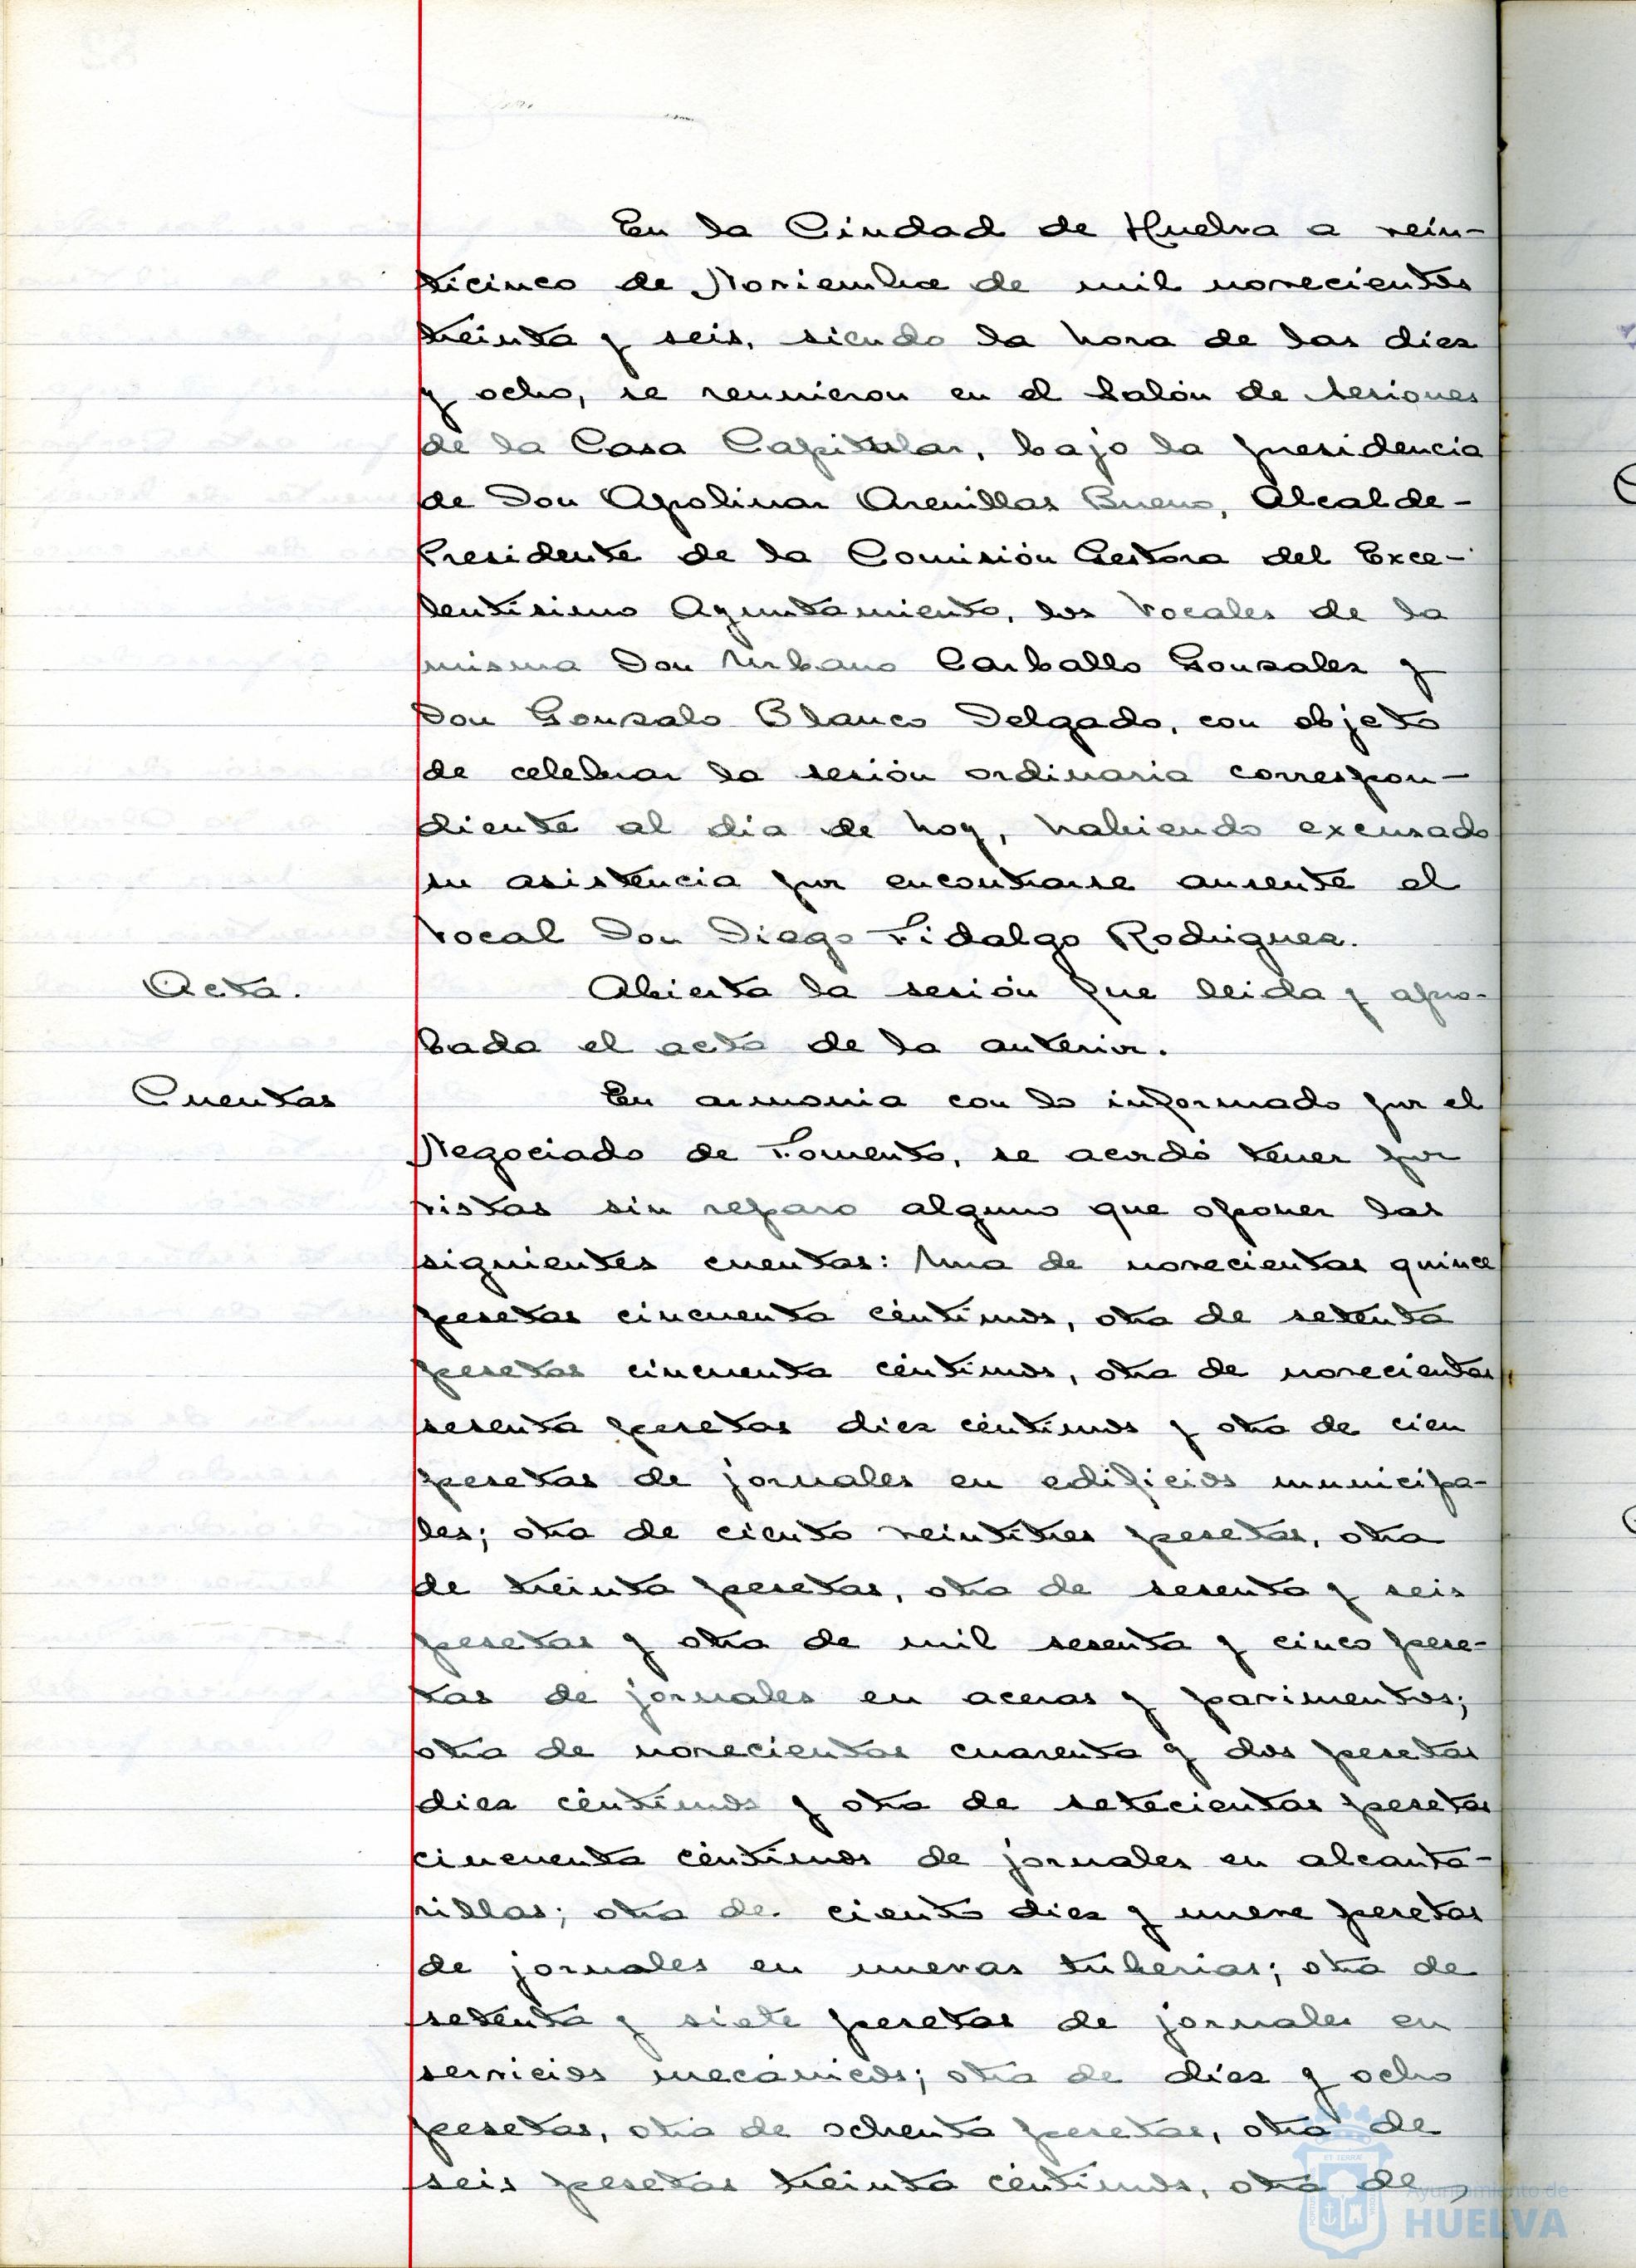 En la Ciudad de Huelva a vein-
ticinco de Noviembre de mil novecientos
treinta y seis, siendo la hora de las diez
y ocho, se reunieron en el Salón de Sesiones
de la Casa Capitular, bajo la presidencia
de Don Apolinar Arenillas Bueno, Alcalde-
Presidente de la Comisión Gestora del Exce-
lentísimo Ayuntamiento, los Vocales de la
misma Don Urbano Carballo Gonzalez y
Don Gonzalo Blanco Delgado, con objeto
de celebrar la sesión ordinaria correspon-
diente al dia de hoy, habiendo excusado
su asistencia por encontrarse ausente el
Vocal Don Diego Fidalgo Rodriguez.
Acta.
Abierta la sesión fue leida y apro-
bada el acta de la anterior.
Cuentas
En armonia con lo informado por el
Negociado de Fomento, se acordó tener por
vistas sin reparo alguno que oponer las
siguientes cuentas: Una de novecientas quince
pesetas cincuenta céntimos, otra de setenta
pesetas cincuenta céntimos, otra de novecientas
sesenta pesetas diez céntimos y otra de cien
pesetas de jornales en edificios municipa-
les; otra de ciento veintitres pesetas, otra
de treinta pesetas, otra de sesenta y seis
pesetas y otra de mil sesenta y cinco pese-
tas de jornales en aceras y pavimentos;
otra de novecientas cuarenta y dos pesetas
diez céntimos y otra de setecientas pesetas
cincuenta céntimos de jornales en alcanta-
rillas; otra de ciento diez y nueve pesetas
de jornales en nuevas tuberias; otra de
setenta y siete pesetas de jornales en
servicios mecánicos; otra de diez y ocho
pesetas, otra de ochenta pesetas, otra de
seis pesetas treinta céntimos, otra de
Ayuntamiento de
HUELVA